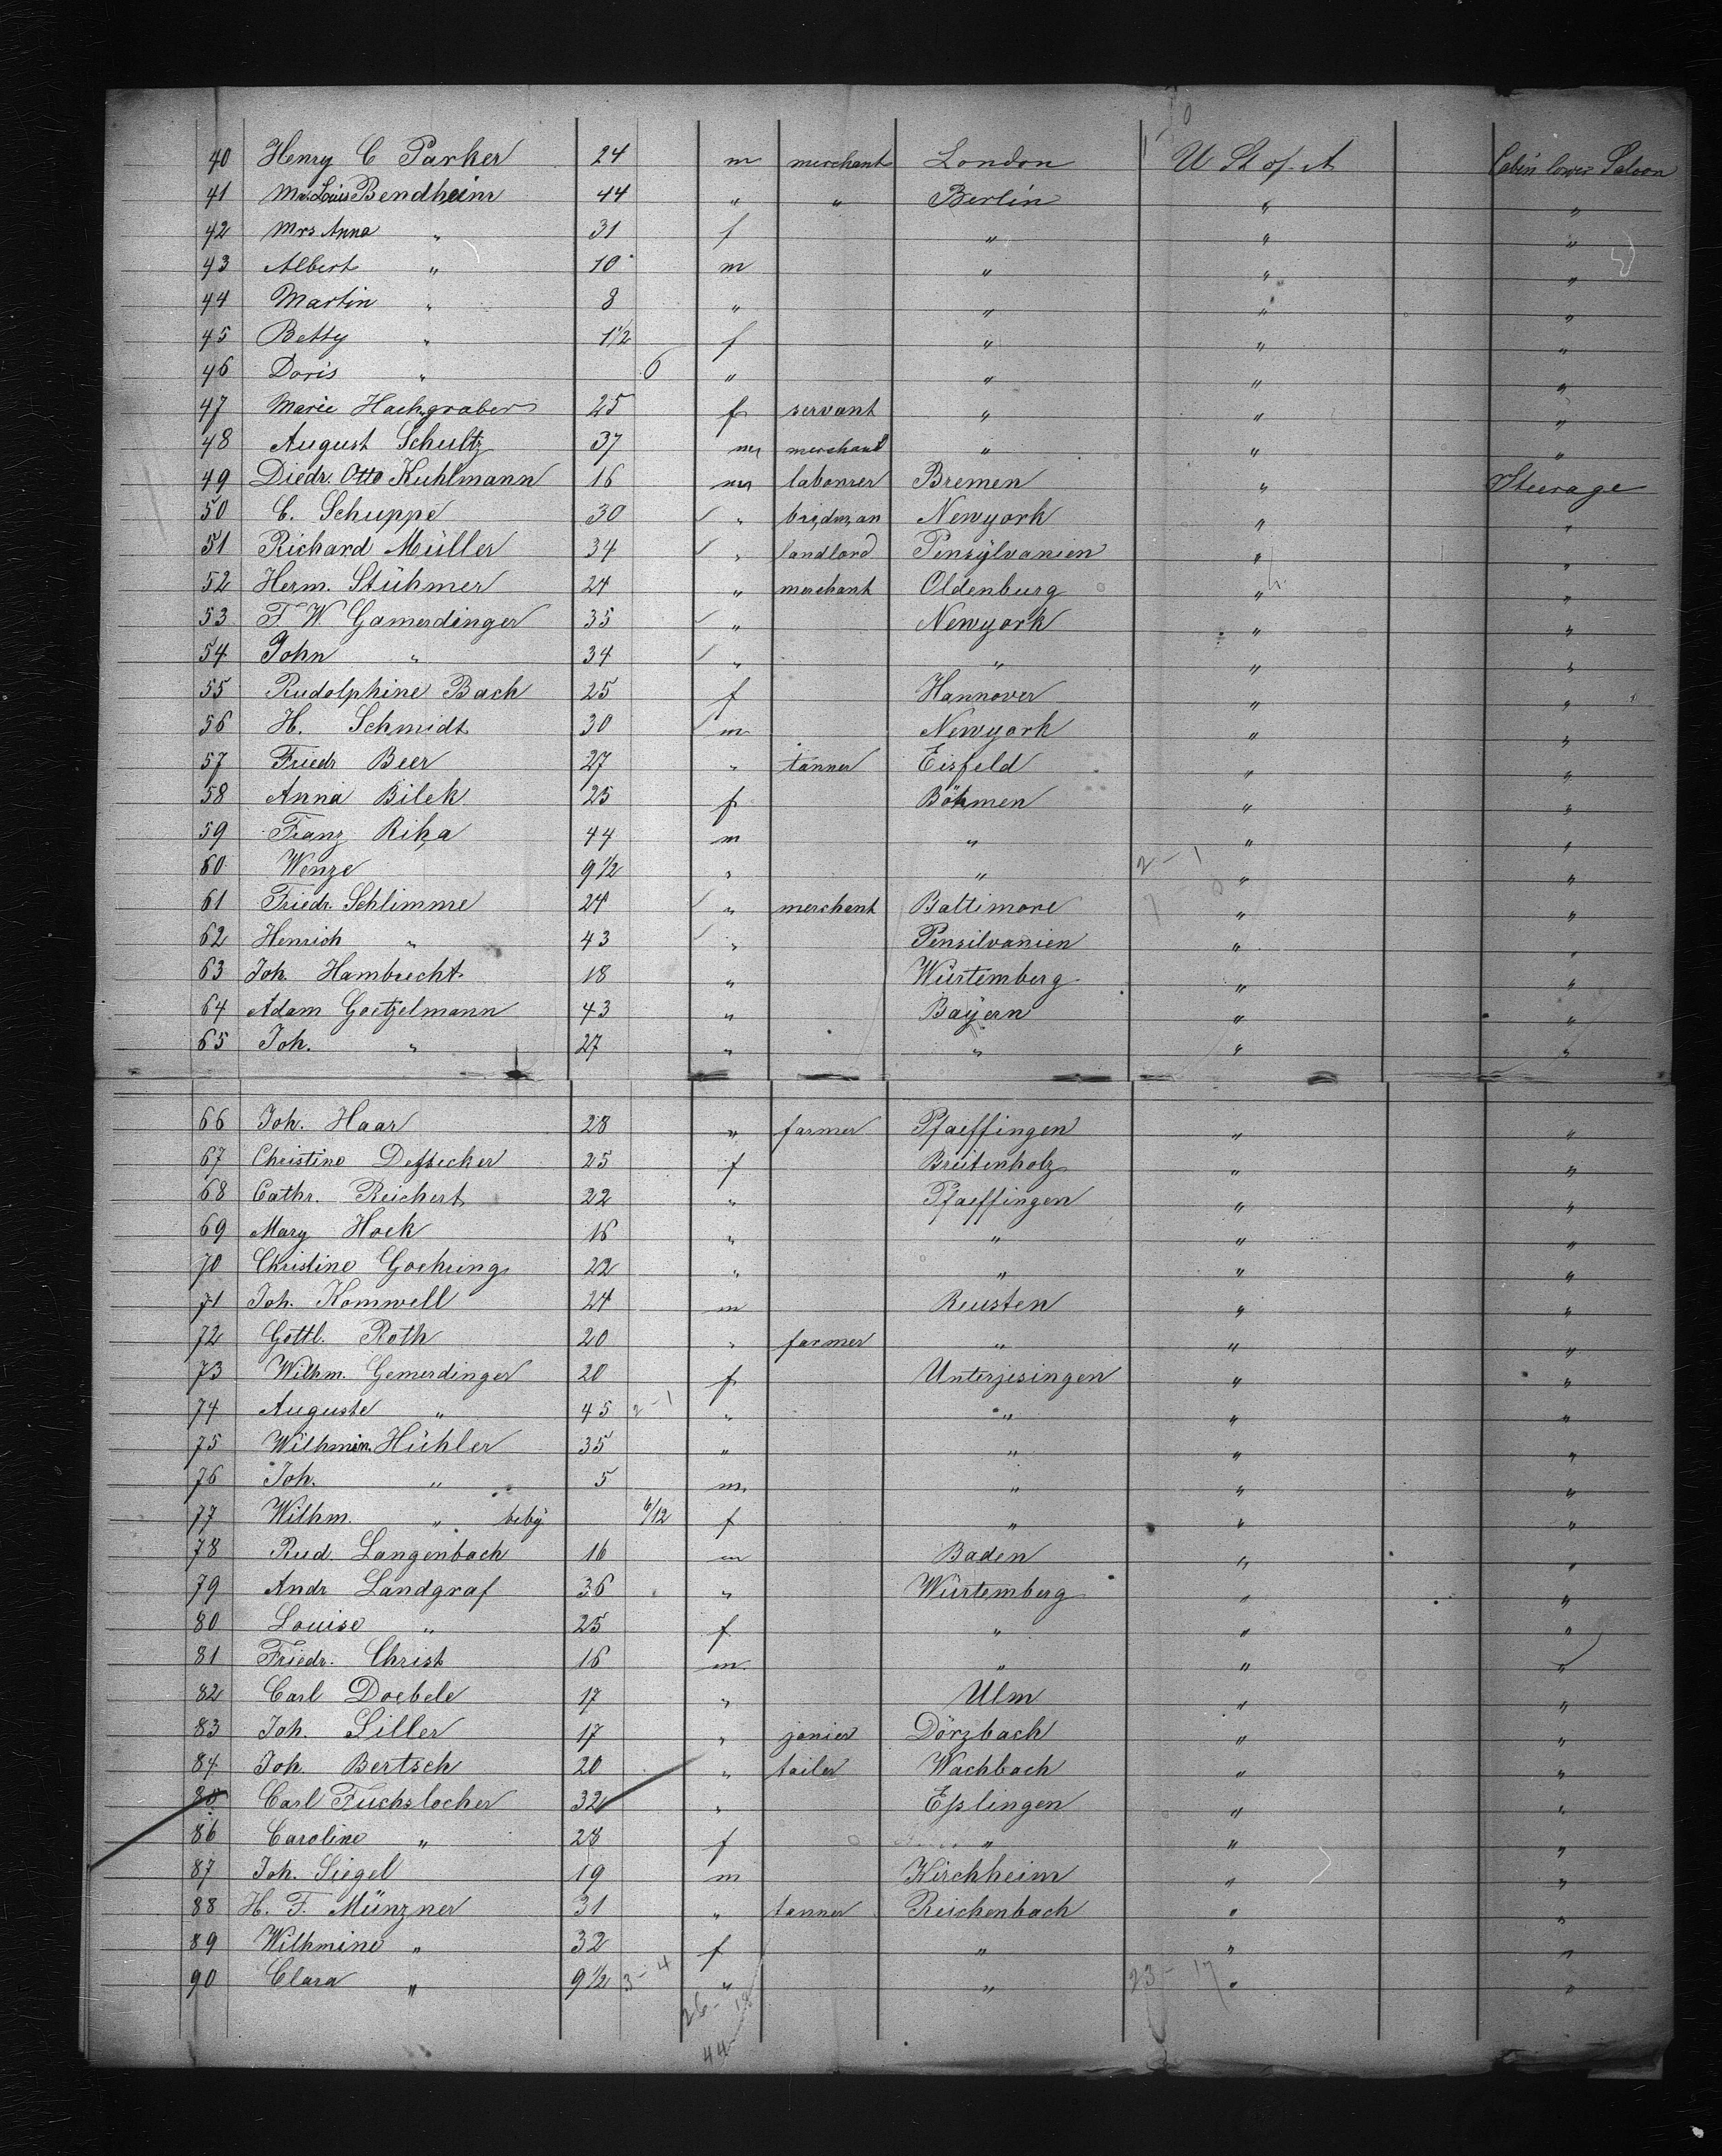 40 Henry C Parker 24 m merchant London U St of A Cabin lower Saloon
41 Mr. Louis Bendheim 44 " " Berlin " "
42 Mrs Anna " 31 f " " "
43 Albert " 10 m " " "
44 Martin " 8 " " " "
45 Betty " 1 1/2 f " " "
46 Doris " 6 " " " "
47 Marie Hachgraber 25 f servant " " "
48 August Schultz 37 m merchant " " "
49 Diedr. Otto Kuhlmann 16 m labourer Bremen " Steerage
50 C. Schuppe 30 " Newyork " "
51 Richard Müller 34 " landlord Pensylvanien " "
52 Herm. Stühmer 24 " merchant Oldenburg " "
53 F W Gamerdinger 35 " Newyork " "
54 John " 34 " " " "
55 Rudolphine Bach 25 f Hannover " "
56 H. Schmidt 30 m Newyork " "
57 Friedr Beer 27 " tanner Eisfeld " "
58 Anna Bilek 25 f Böhmen " "
59 Franz Riha 44 m " " "
60 Wenze 9 1/2 " " 2-1 " "
61 Friedr. Schlimme 24 " merchant Baltimore " "
62 Henrich " 43 " Pensilvanien " "
63 Joh. Hambrecht 18 " Würtemberg " "
64 Adam Goetzelmann 43 " Bayern " "
65 Joh. " 27 " " " "
66 Joh. Haar 28 " farmer Pfaeffingen " "
67 Christine 25 f Breitenholz " "
68 Cathr. Reichert 22 " Pfaeffingen " "
69 Mary Hock 16 " " " "
70 Christine Goehring 22 " " " "
71 Joh. Komwell 24 m Reusten " "
72 Gottl. Roth 20 " farmer " " "
73 Wilhm. Gemerdinger 20 f Unterjesingen " "
74 Auguste " 45 2-1 " " " "
75 Wilhmin. Hühler 35 " " " "
76 Joh. " 5 m. " " "
77 Wilhm. " beby /12 f " " "
78 Rud. Langenbach 16 m Baden " "
79 Andr Landgraf 36 " Würtemberg " "
80 Louise " 25 f " " "
81 Friedr. Christ 16 m. " " "
82 Carl Doebele 17 " Ulm " "
83 Joh. Siller 17 " jonier Dörzbach " "
84 Joh. Bertsch 20 " tailer Wachbach " "
85 Carl Fuchslocher 32 " Eßlingen " "
86 Caroline " 28 f " " "
87 Joh. Siegel 19 m Kirchheim " "
88 H. F. Münzner 31 " tanner Reichenbach " "
89 Wilhmine " 32 f " " "
90 Clara " 9 1/2 3-4 " " 23-17 " "
26-18
44